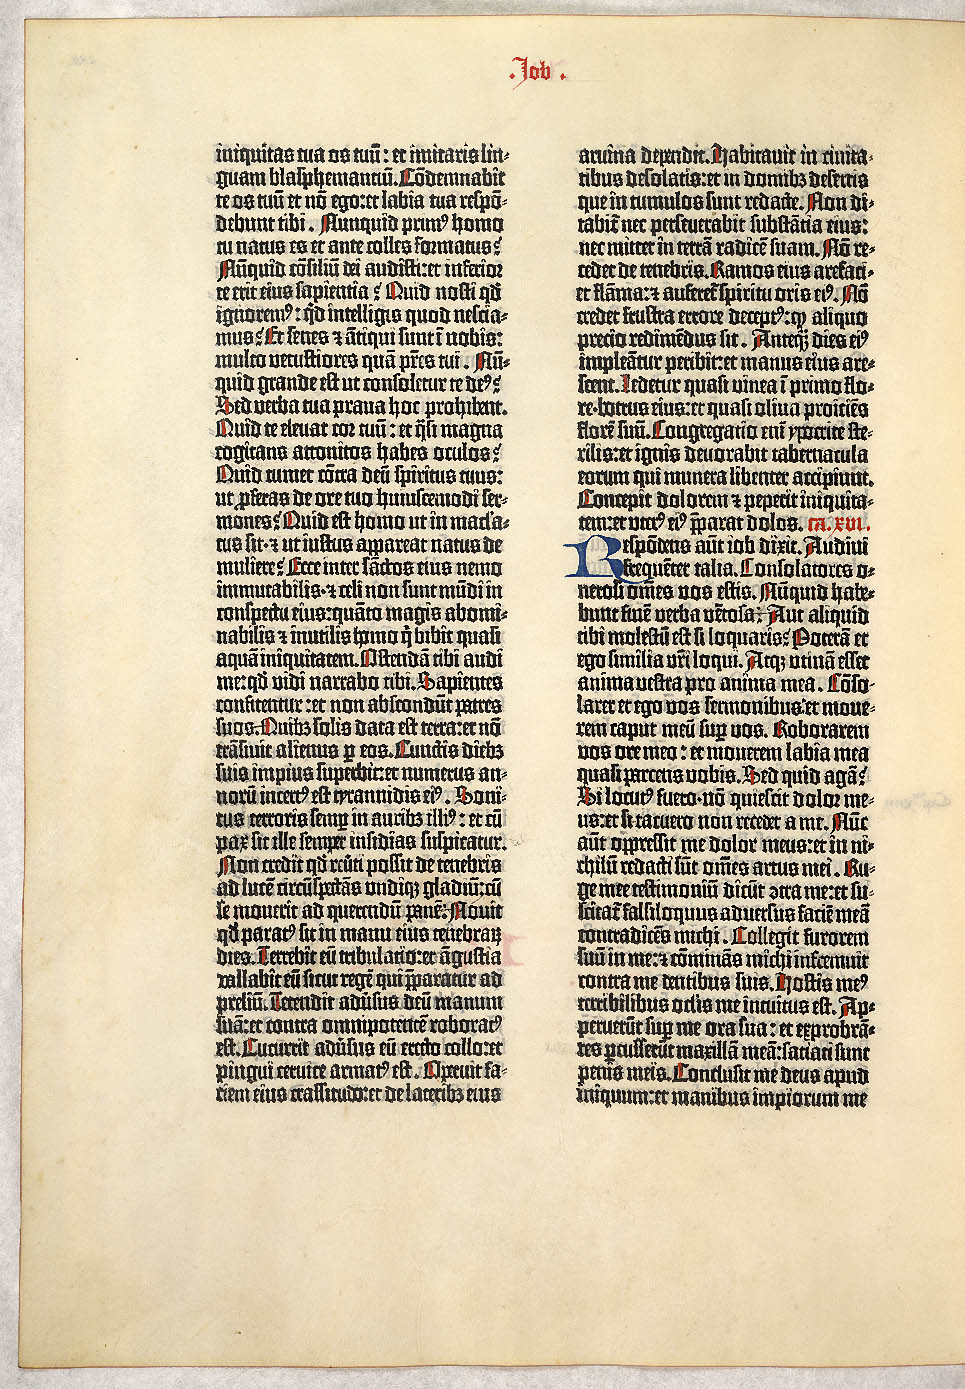 .Job.
iniquitas tua os tuū: et imitaris lin-
guam blasphemantiū. Cōdemnabit
te os tuū et nō ego: et labia tua respō-
debunt tibi. Nunquid primꝰ homo
tu natus es et ante colles formatus?
Nūquid cōsiliū dei audisti: et inferior
te erit eius sapientia? Quid nosti qđ
ignoremꝰ: qđ intelligis quod nescia-
mus? Et senes ⁊ ātiqui sunt ī nobis:
multo vetustiores quā pr̄es tui. Nū-
quid grande est ut consoletur te deꝰ?
Sed verba tua praua hoc prohibent.
Quid te eleuat cor tuū: et q̄si magna
cogitans attonitos habes oculos?
Quid tumet cōtra deū spiritus tuus:
ut ꝓferas de ore tuo huiuscemodi ser-
mones? Quid est homo ut in macl̕a-
tus sit· ⁊ ut iustus appareat natus de
muliere? Ecce inter sāctos eius nemo
immutabilis· ⁊ celi non sunt mūdi in
conspectu eius: quāto magis abomi-
nabilis ⁊ inutilis homo q̄ bibit quasi
aquā iniquitatem. Ostendā tibi audi
me: qđ vidi narrabo tibi. Sapientes
confitentur: et non abscondūt patres
suos. Quibꝫ solis data est terra: et nō
trāsiuit alienus ꝑ eos. Cunctis diebꝫ
suis impius superbit: et numerus an-
norū incertꝰ est tyrannidis eiꝰ. Soni-
tus terroris semꝑ in auribꝫ illiꝰ: et cū
pax sit ille semper insidias suspicatur.
Non credit qđ reūti possit de tenebris
ad lucē circūspectās vndiqꝫ gladiū: cū
se mouerit ad querendū panē: Nouit
qđ paratꝰ sit in manu eius tenebraꝝ
dies. Terrebit eū tribulatio: et āgustia
vallabit eū sicut regē qui p̄paratur ad
preliū. Tetendit aduersus deū manum
suā: et contra omnipotentē roboratꝰ
est. Cucurrit aduersus eū erecto collo: et
pingui ceruice armatꝰ est. Operuit fa-
ciem eius crassitudo: et de lateribꝫ eius
aruina dependit. Habitauit in ciuita-
tibus desolatis: et in domibꝫ desertis
que in tumulos sunt redacte. Non di-
tabit̄ nec perseuerabit substātia eius:
nec mittet in terrā radicē suam. Nō re-
cedet de tenebris. Ramos eius arefaci-
et flāma: ⁊ auferet̄ spiritu oris eiꝰ. Nō
credet frustra errore deceptꝰ: ꝙ aliquo
precio redimēdus sit. Anteqꝫ̄ dies eiꝰ
impleātur peribit: et manus eius are-
scent. Ledetur quasi vinea ī primo flo-
re· botrus eius: et quasi oliua proiciēs
florē suū. Congregatio enī ypocrite ste-
rilis: et ignis deuorabit tabernacula
eorum qui munera libenter accipiunt.
Concepit dolorem ⁊ peperit iniquita-
tem: et uterꝰ eiꝰ p̄parat dolos. ca. xvi.
Respōdens aūt iob dixit. Audiui
frequēter talia. Consolatores o-
nerosi om̄es vos estis. Nūquid habe-
bunt finē verba vētosa? Aut aliquid
tibi molestū est si loquaris? Poterā et
ego similia vr̄i loqui. Atqꝫ vtinā esset
anima vestra pro anima mea. Cōso-
larer et ego vos sermonibus· et moue-
rem caput meū suꝑ vos. Roborarem
vos ore meo: et mouerem labia mea
quasi parcens vobis. Sed quid agā?
Si locutꝰ fuero· nō quiescit dolor me-
us: et si tacuero non recedet a me. Nūc
aūt oppressit me dolor meus: et in ni-
chilū redacti sūt om̄es artus mei. Ru-
ge mee testimoniū dicūt ꝯtra me: et su-
scitat̄ falsiloquus aduersus faciē meā
contradicēs michi. Collegit furorem
suū in me: ⁊ cōminās michi infremuit
contra me dentibus suis. Hostis meꝰ
terribilibus oclis me intuitus est. Ap-
peruerūt suꝑ me ora sua: et exprobrā-
tes ꝑcusserūt maxillā meā: saciati sunt
penis meis. Conclusit me deus apud
iniquum: et manibus impiorum me